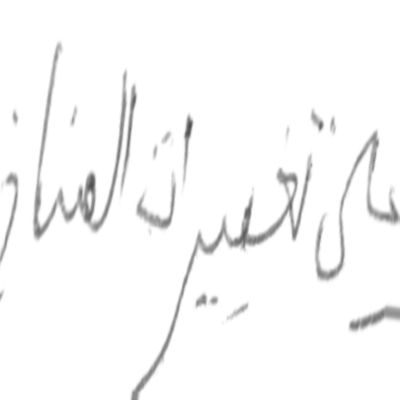 على تغييرات المناخ